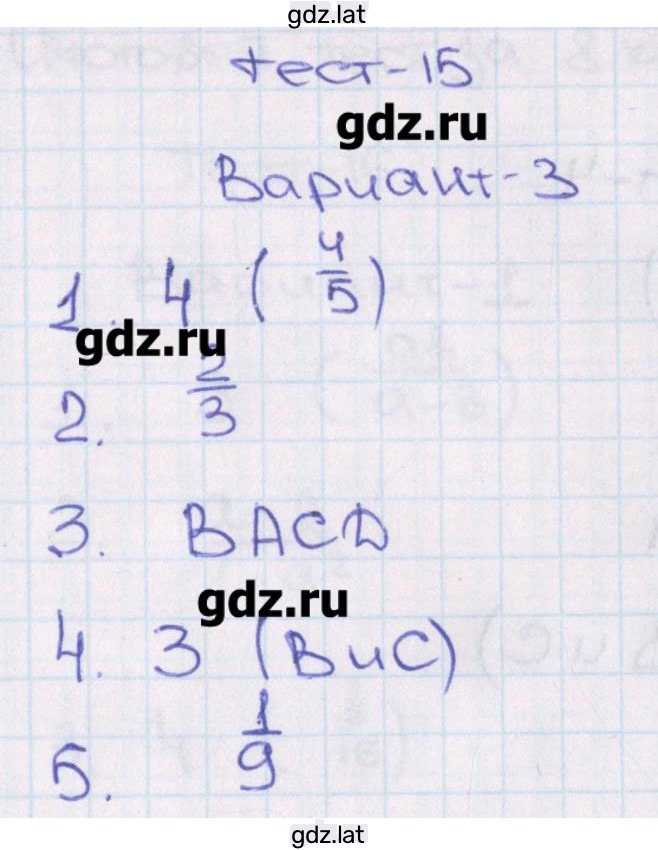 gdz.lat
тест-15
gdz.ru
Вариант-3
1. 4 (4/5)
gdz.ru
2. 2/3
3. BACD
gdz.ru
4. 3 (В и С)
5. 1/9
gdz.lat